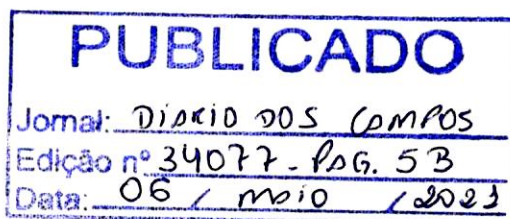 PUBLICADO
Jornal: DIÁRIO DOS CAMPOS
Edição nº 34077 - PÁG. 5B
Data: 06 / maio / 2021